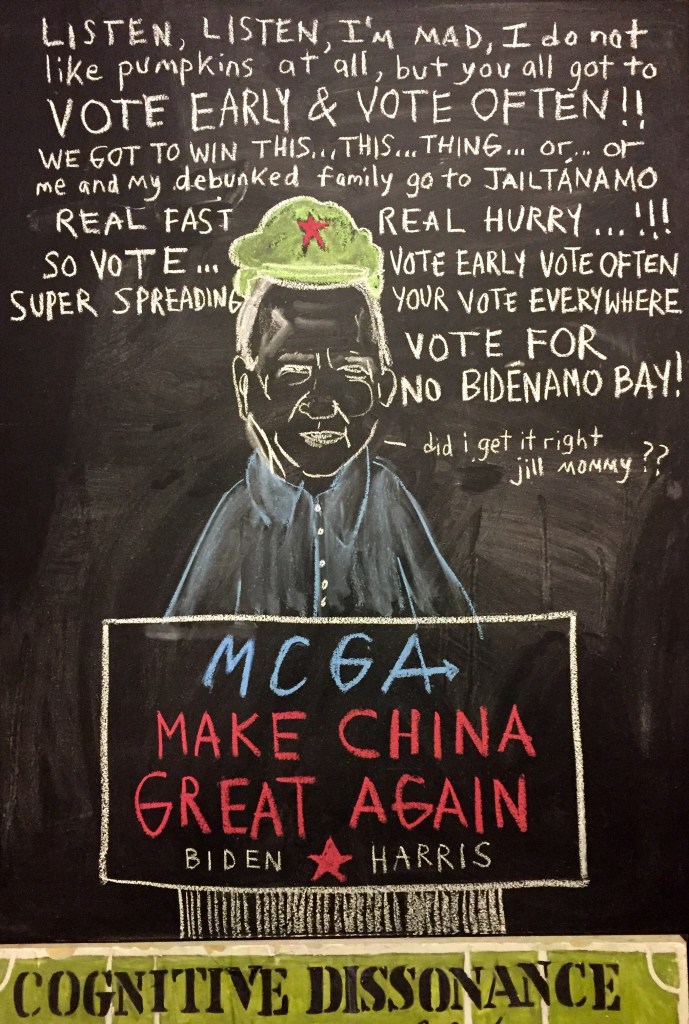 LISTEN, LISTEN, I'M MAD, I do not
like pumpkins at all, but you all got to
VOTE EARLY & VOTE OFTEN!!
WE GOT TO WIN THIS...THIS...THING... or... or
me and my debunked family go to JAILTÁNAMO
REAL FAST REAL HURRY...!!!
SO VOTE... VOTE EARLY VOTE OFTEN
SUPER SPREADING YOUR VOTE EVERYWHERE
VOTE FOR
NO BIDÉNAMO BAY!
— did i get it right
jill MOMMY??
MCGA
MAKE CHINA
GREAT AGAIN
BIDEN ★ HARRIS
COGNITIVE DISSONANCE